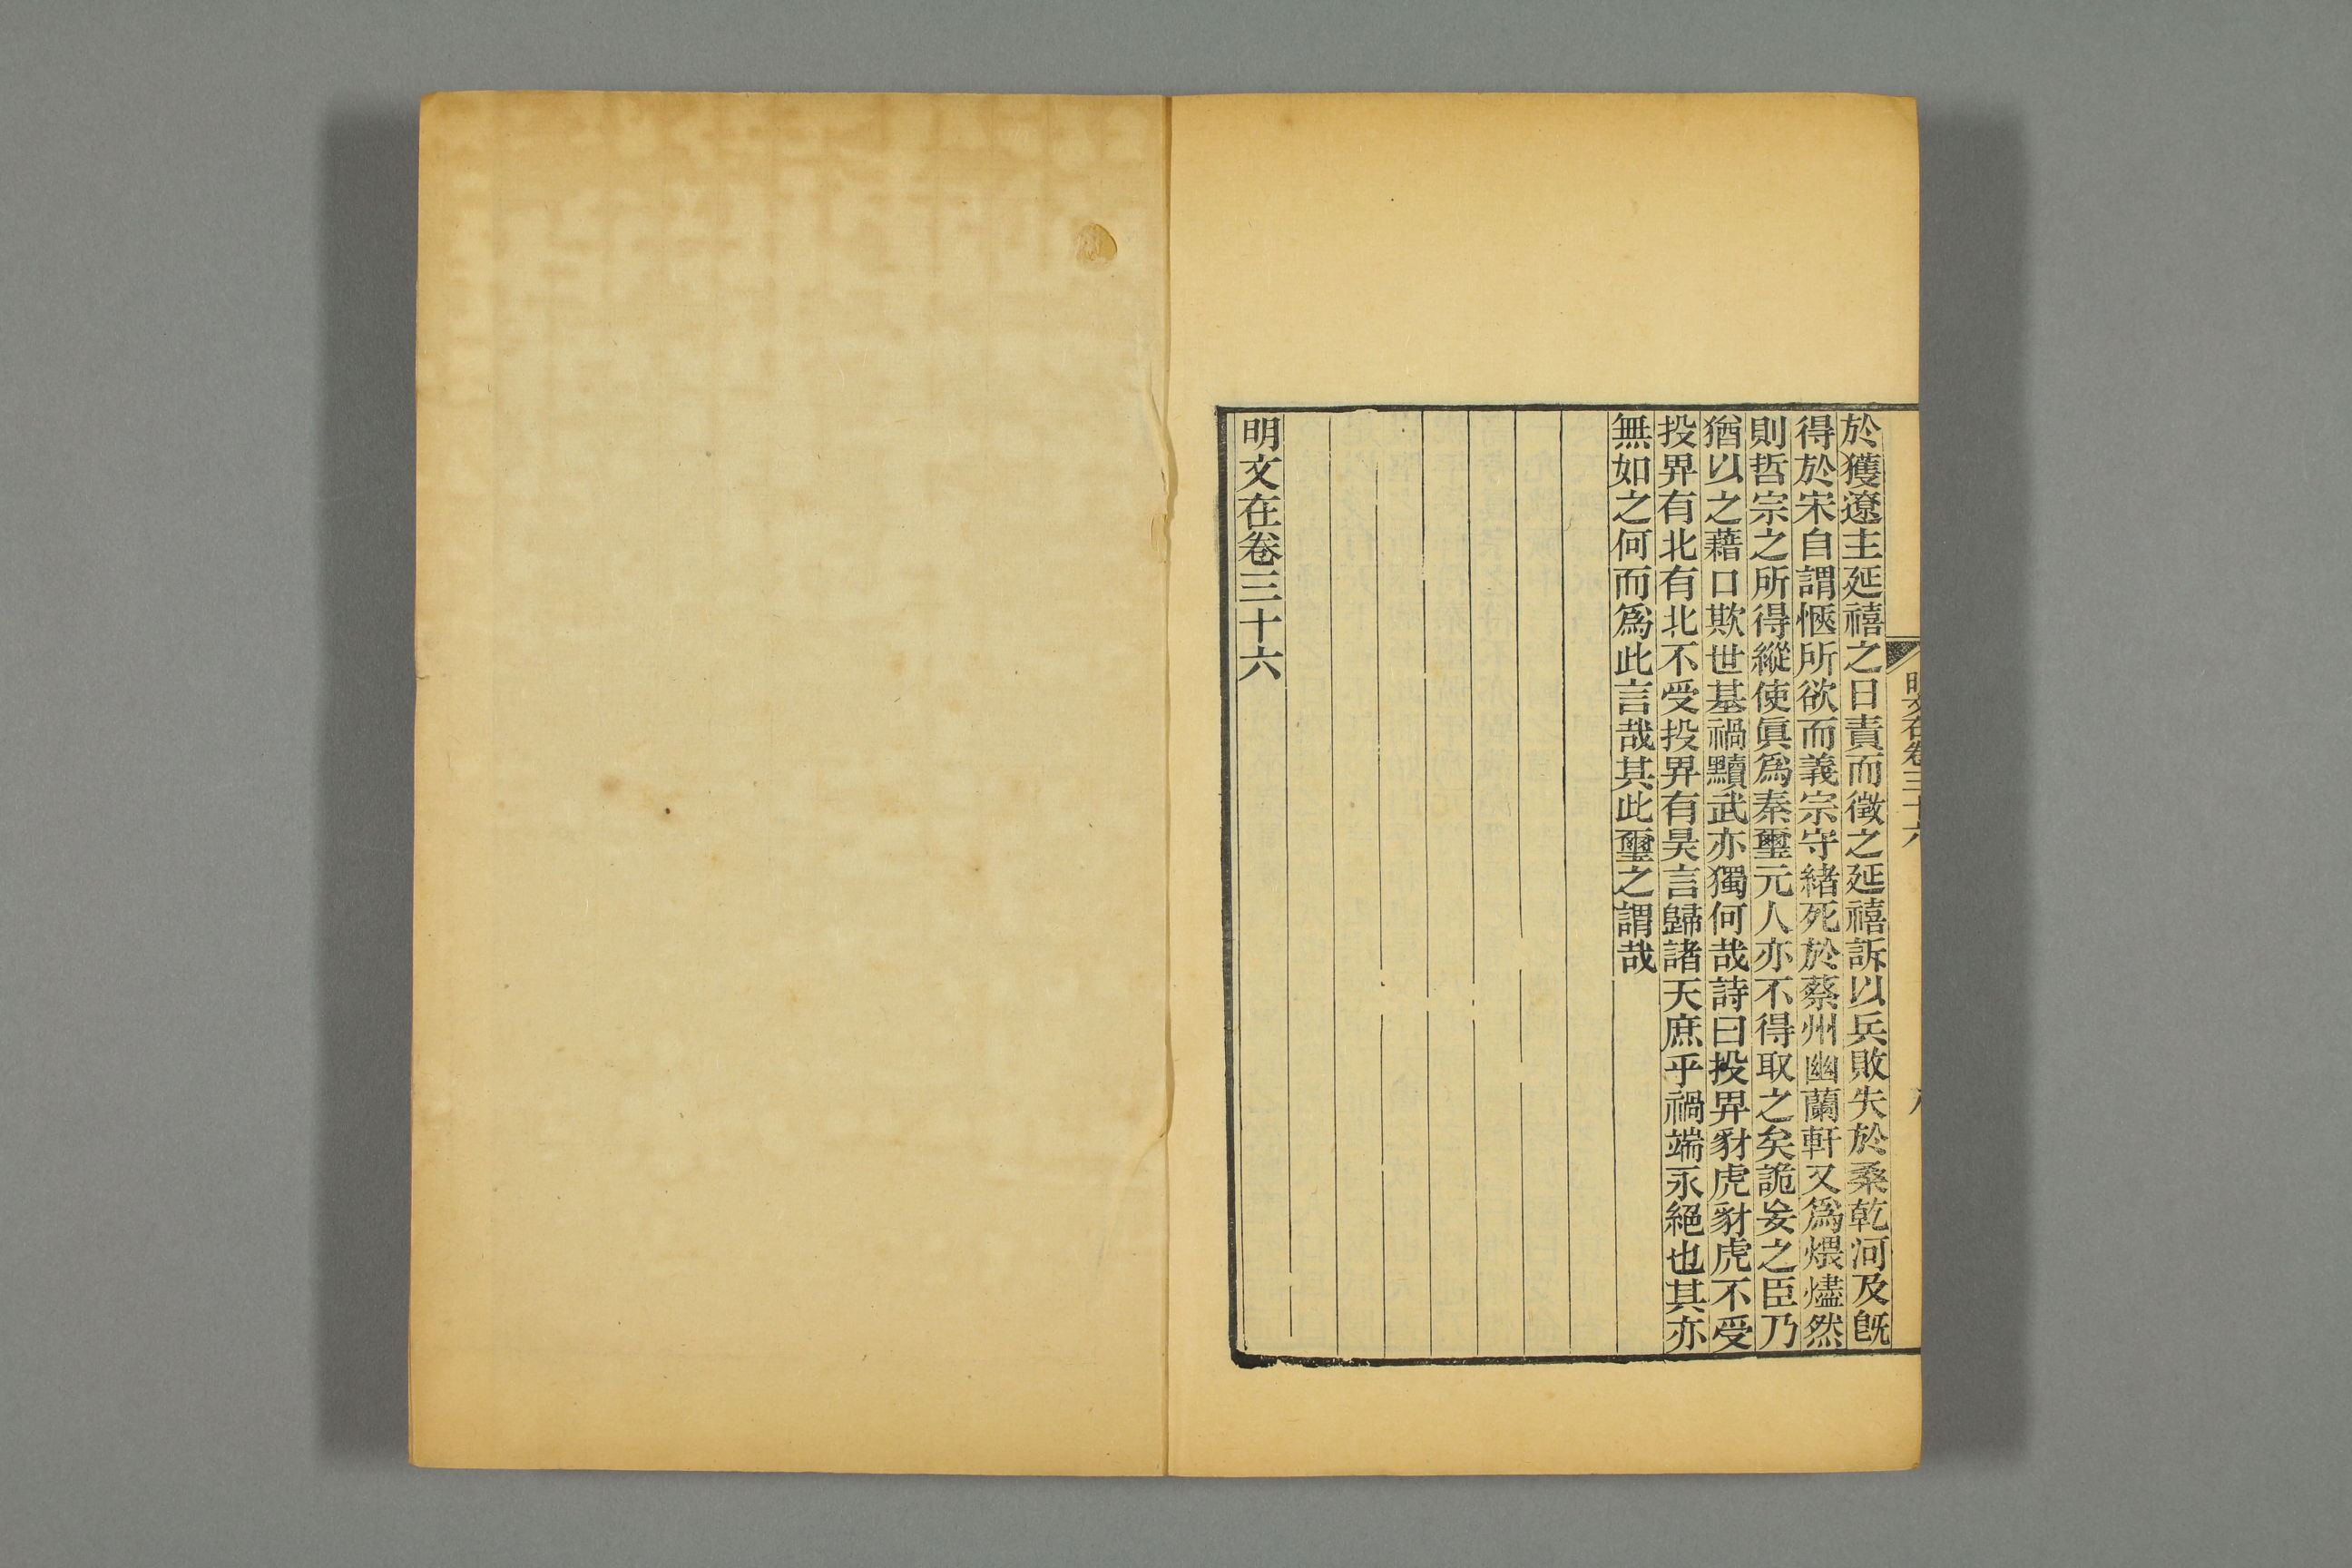 明文在卷三十六
於獲遼主延禧之日責而徵之延禧訴以兵敗失於桑乾河及旣
得於宋自謂愜所欲而義宗守緒死於蔡州幽蘭軒又爲煨燼然
則哲宗之所得縱使眞爲秦璽元人亦不得取之矣詭妄之臣乃
猶以之藉口欺世基禍黷武亦獨何哉詩曰投畀豺虎豺虎不受
投畀有北有北不受投畀有昊言歸諸天庶乎禍端永絕也其亦
無如之何而爲此言哉其此璽之謂哉
明文在卷三十六